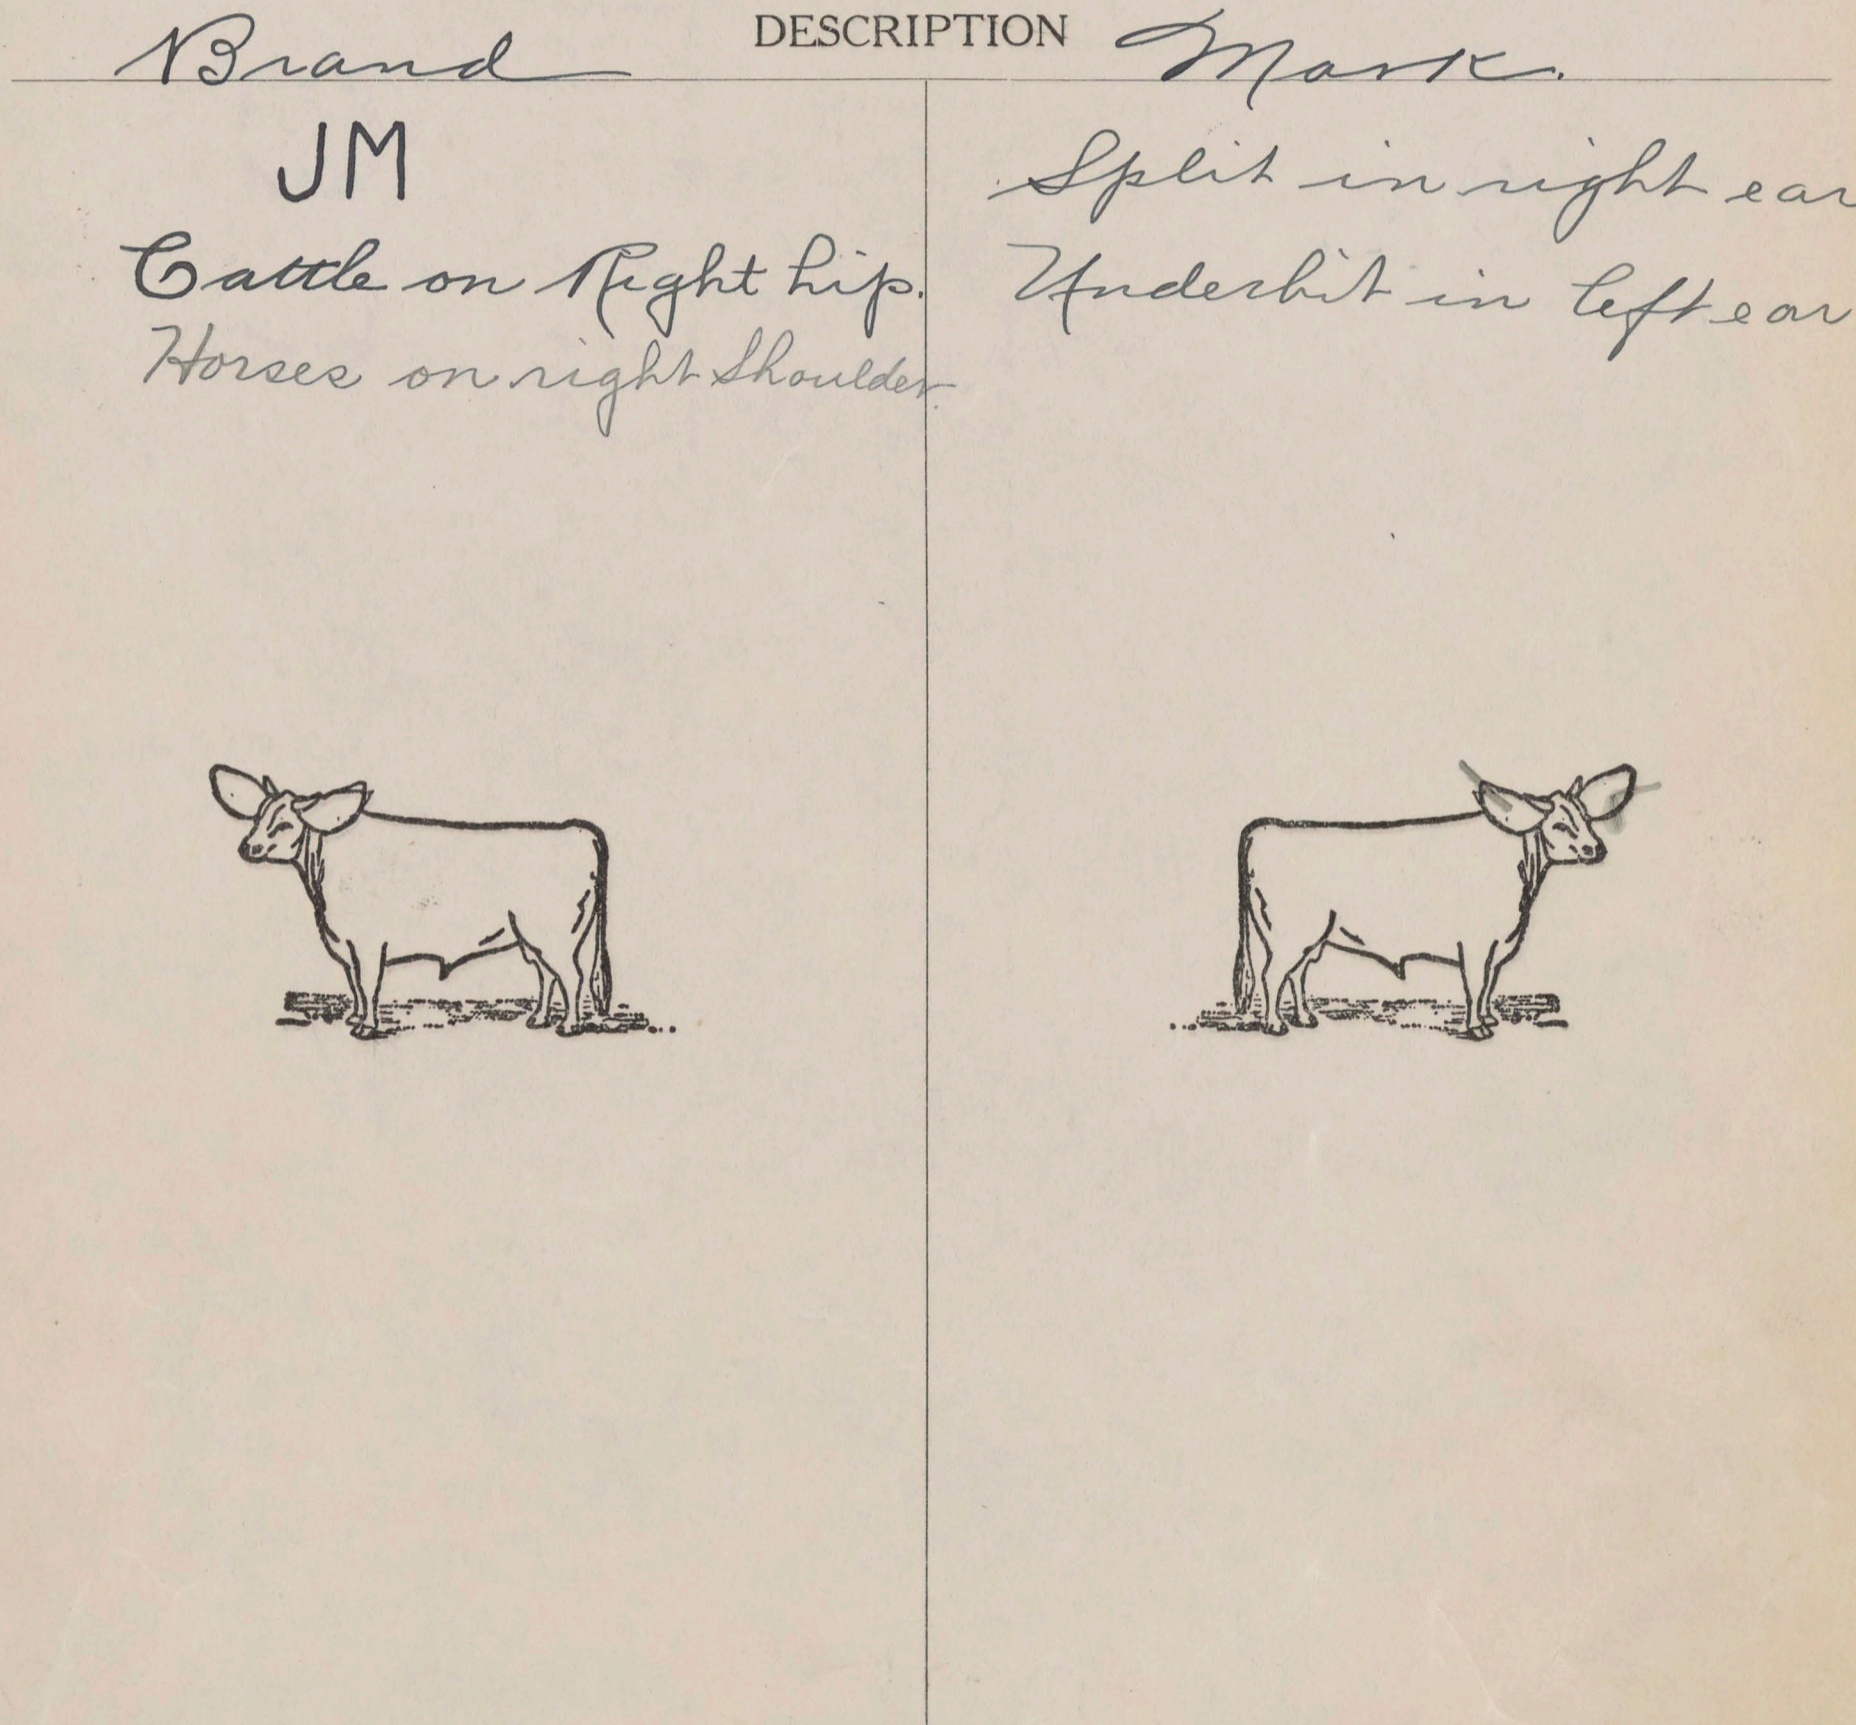 DESCRIPTION
Brand
JM
Cattle on Right hip.
Horses on right shoulder.
Mark.
Split in right ear
Underbit in left ear